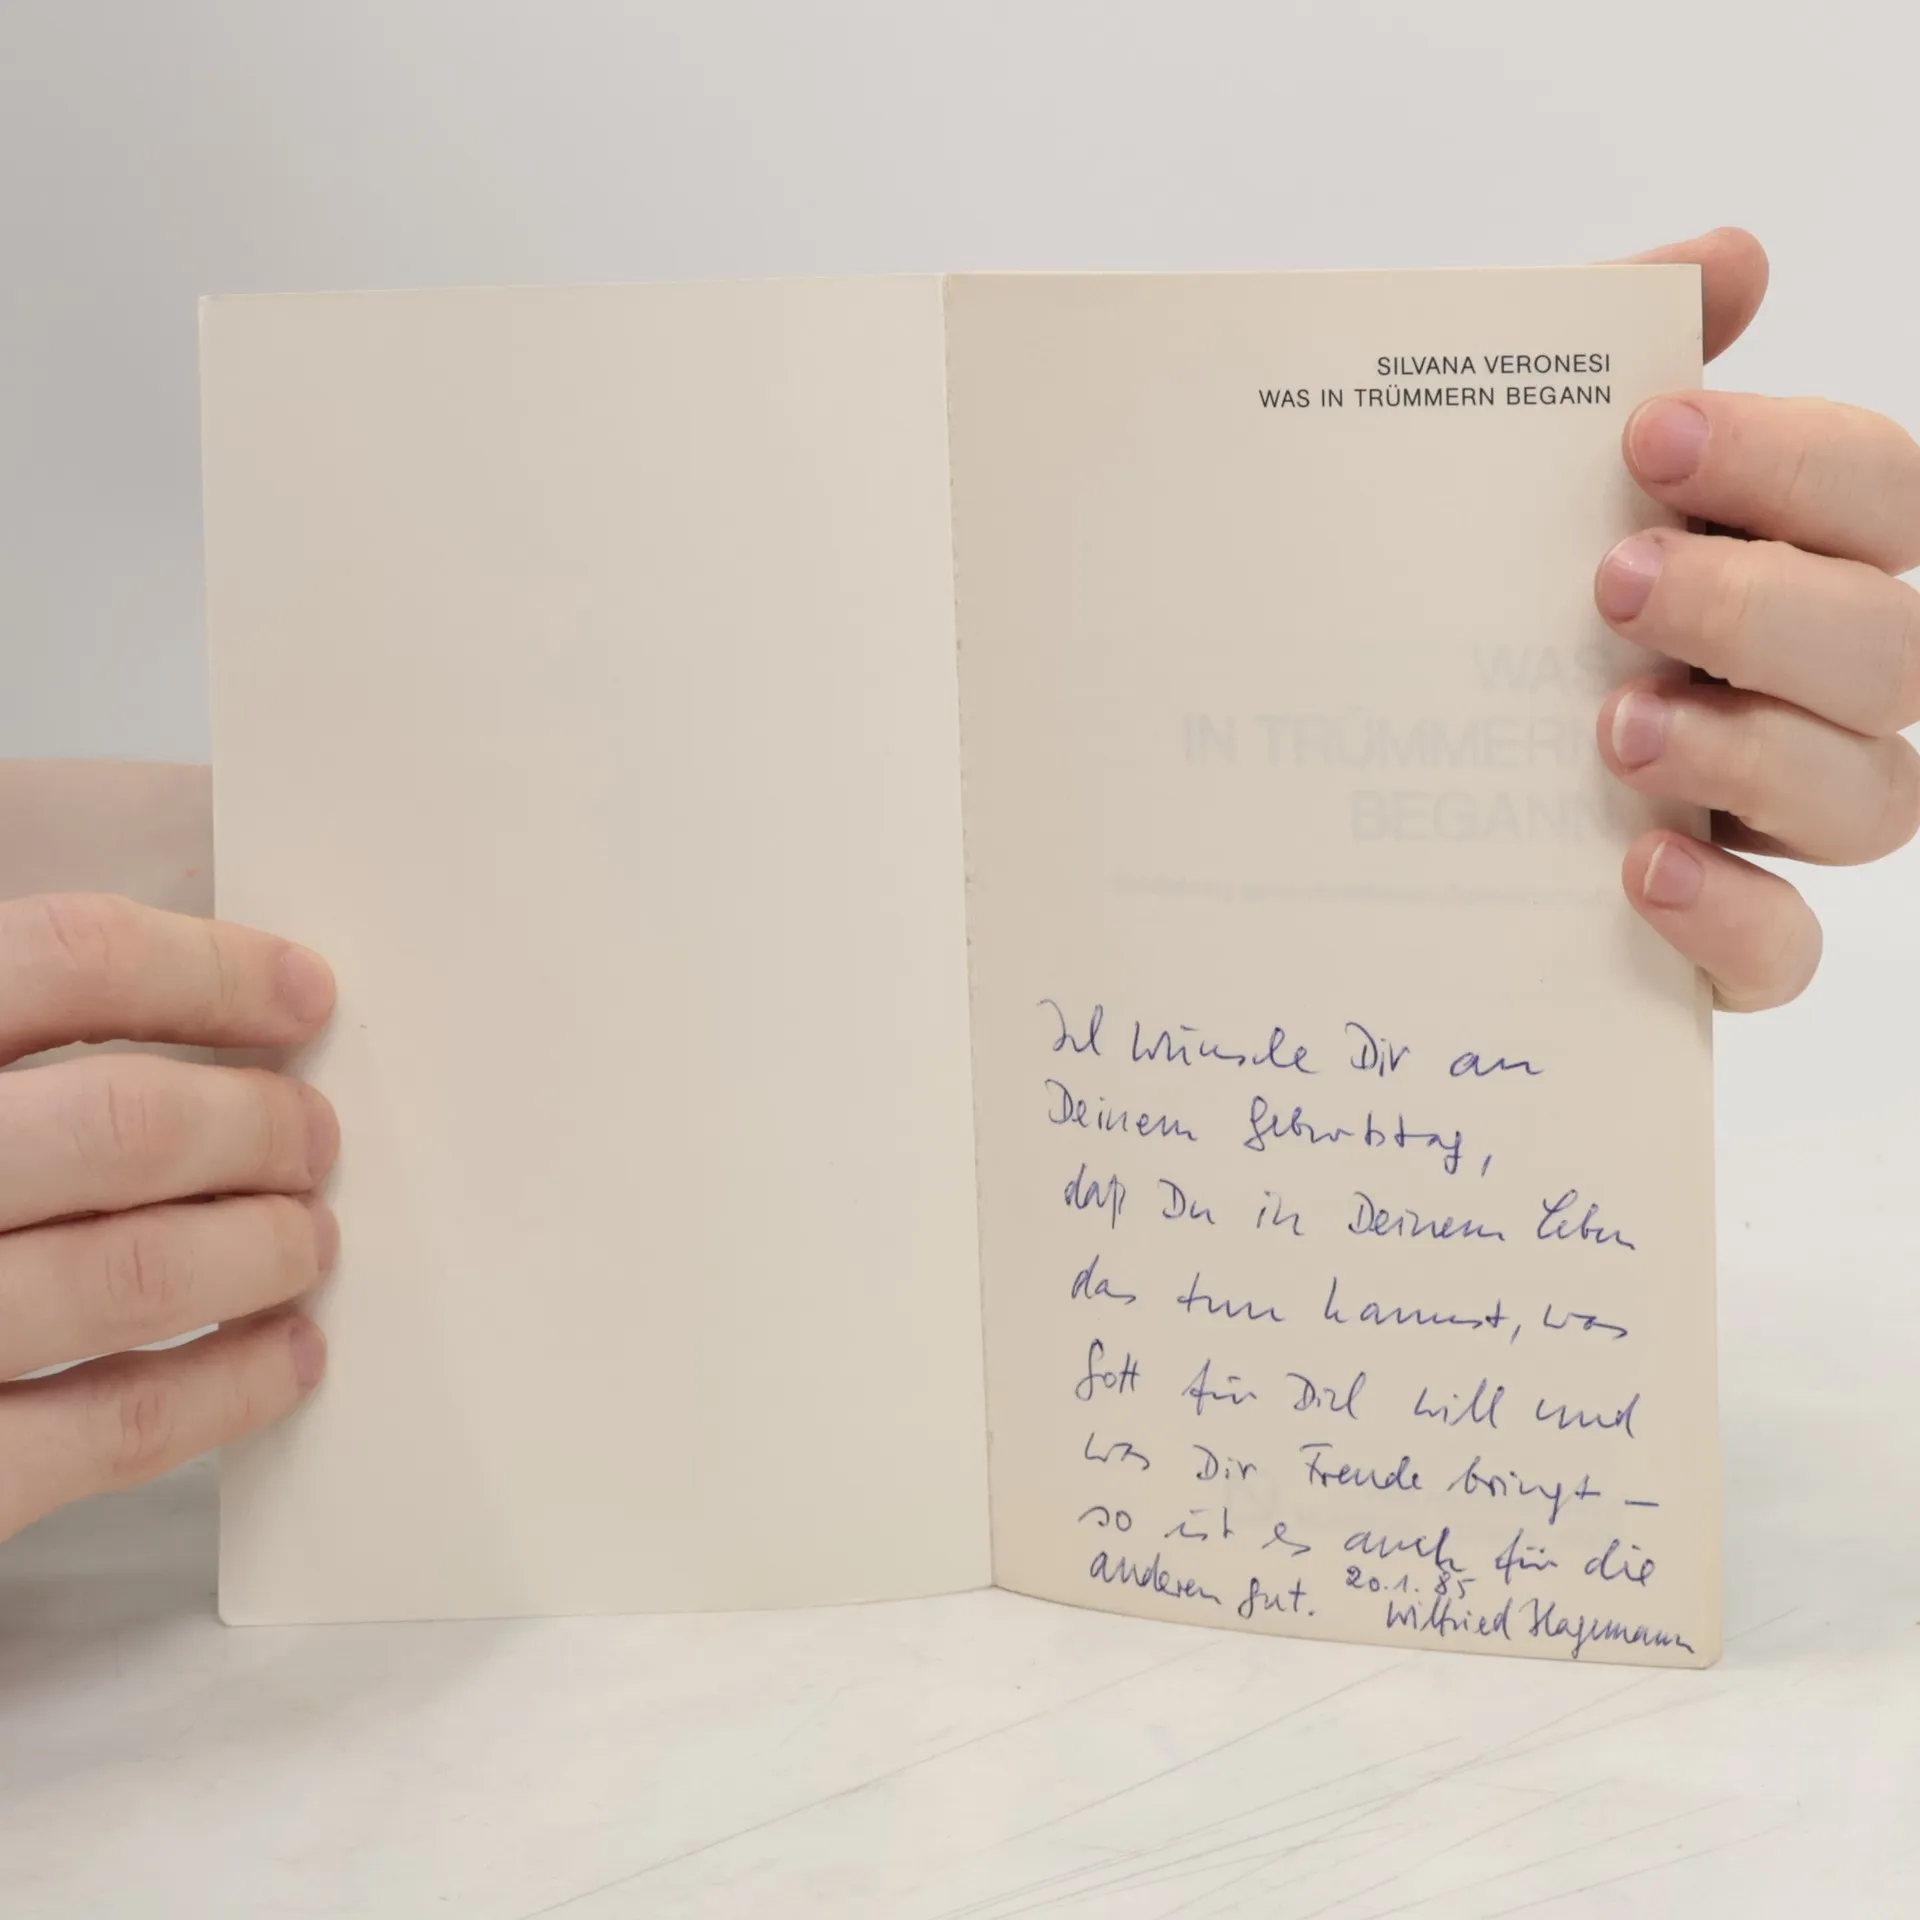 SILVANA VERONESI
WAS IN TRÜMMERN BEGANN
WAS
IN TRÜMMERN
BEGANN
Ich wünsche Dir an
Deinem Geburtstag,
daß Du in Deinem Leben
das tun kannst, was
Gott für Dich will und
was Dir Freude bringt –
so ist es auch für die
anderen gut. 20.1.85
Wilfried Hagemann